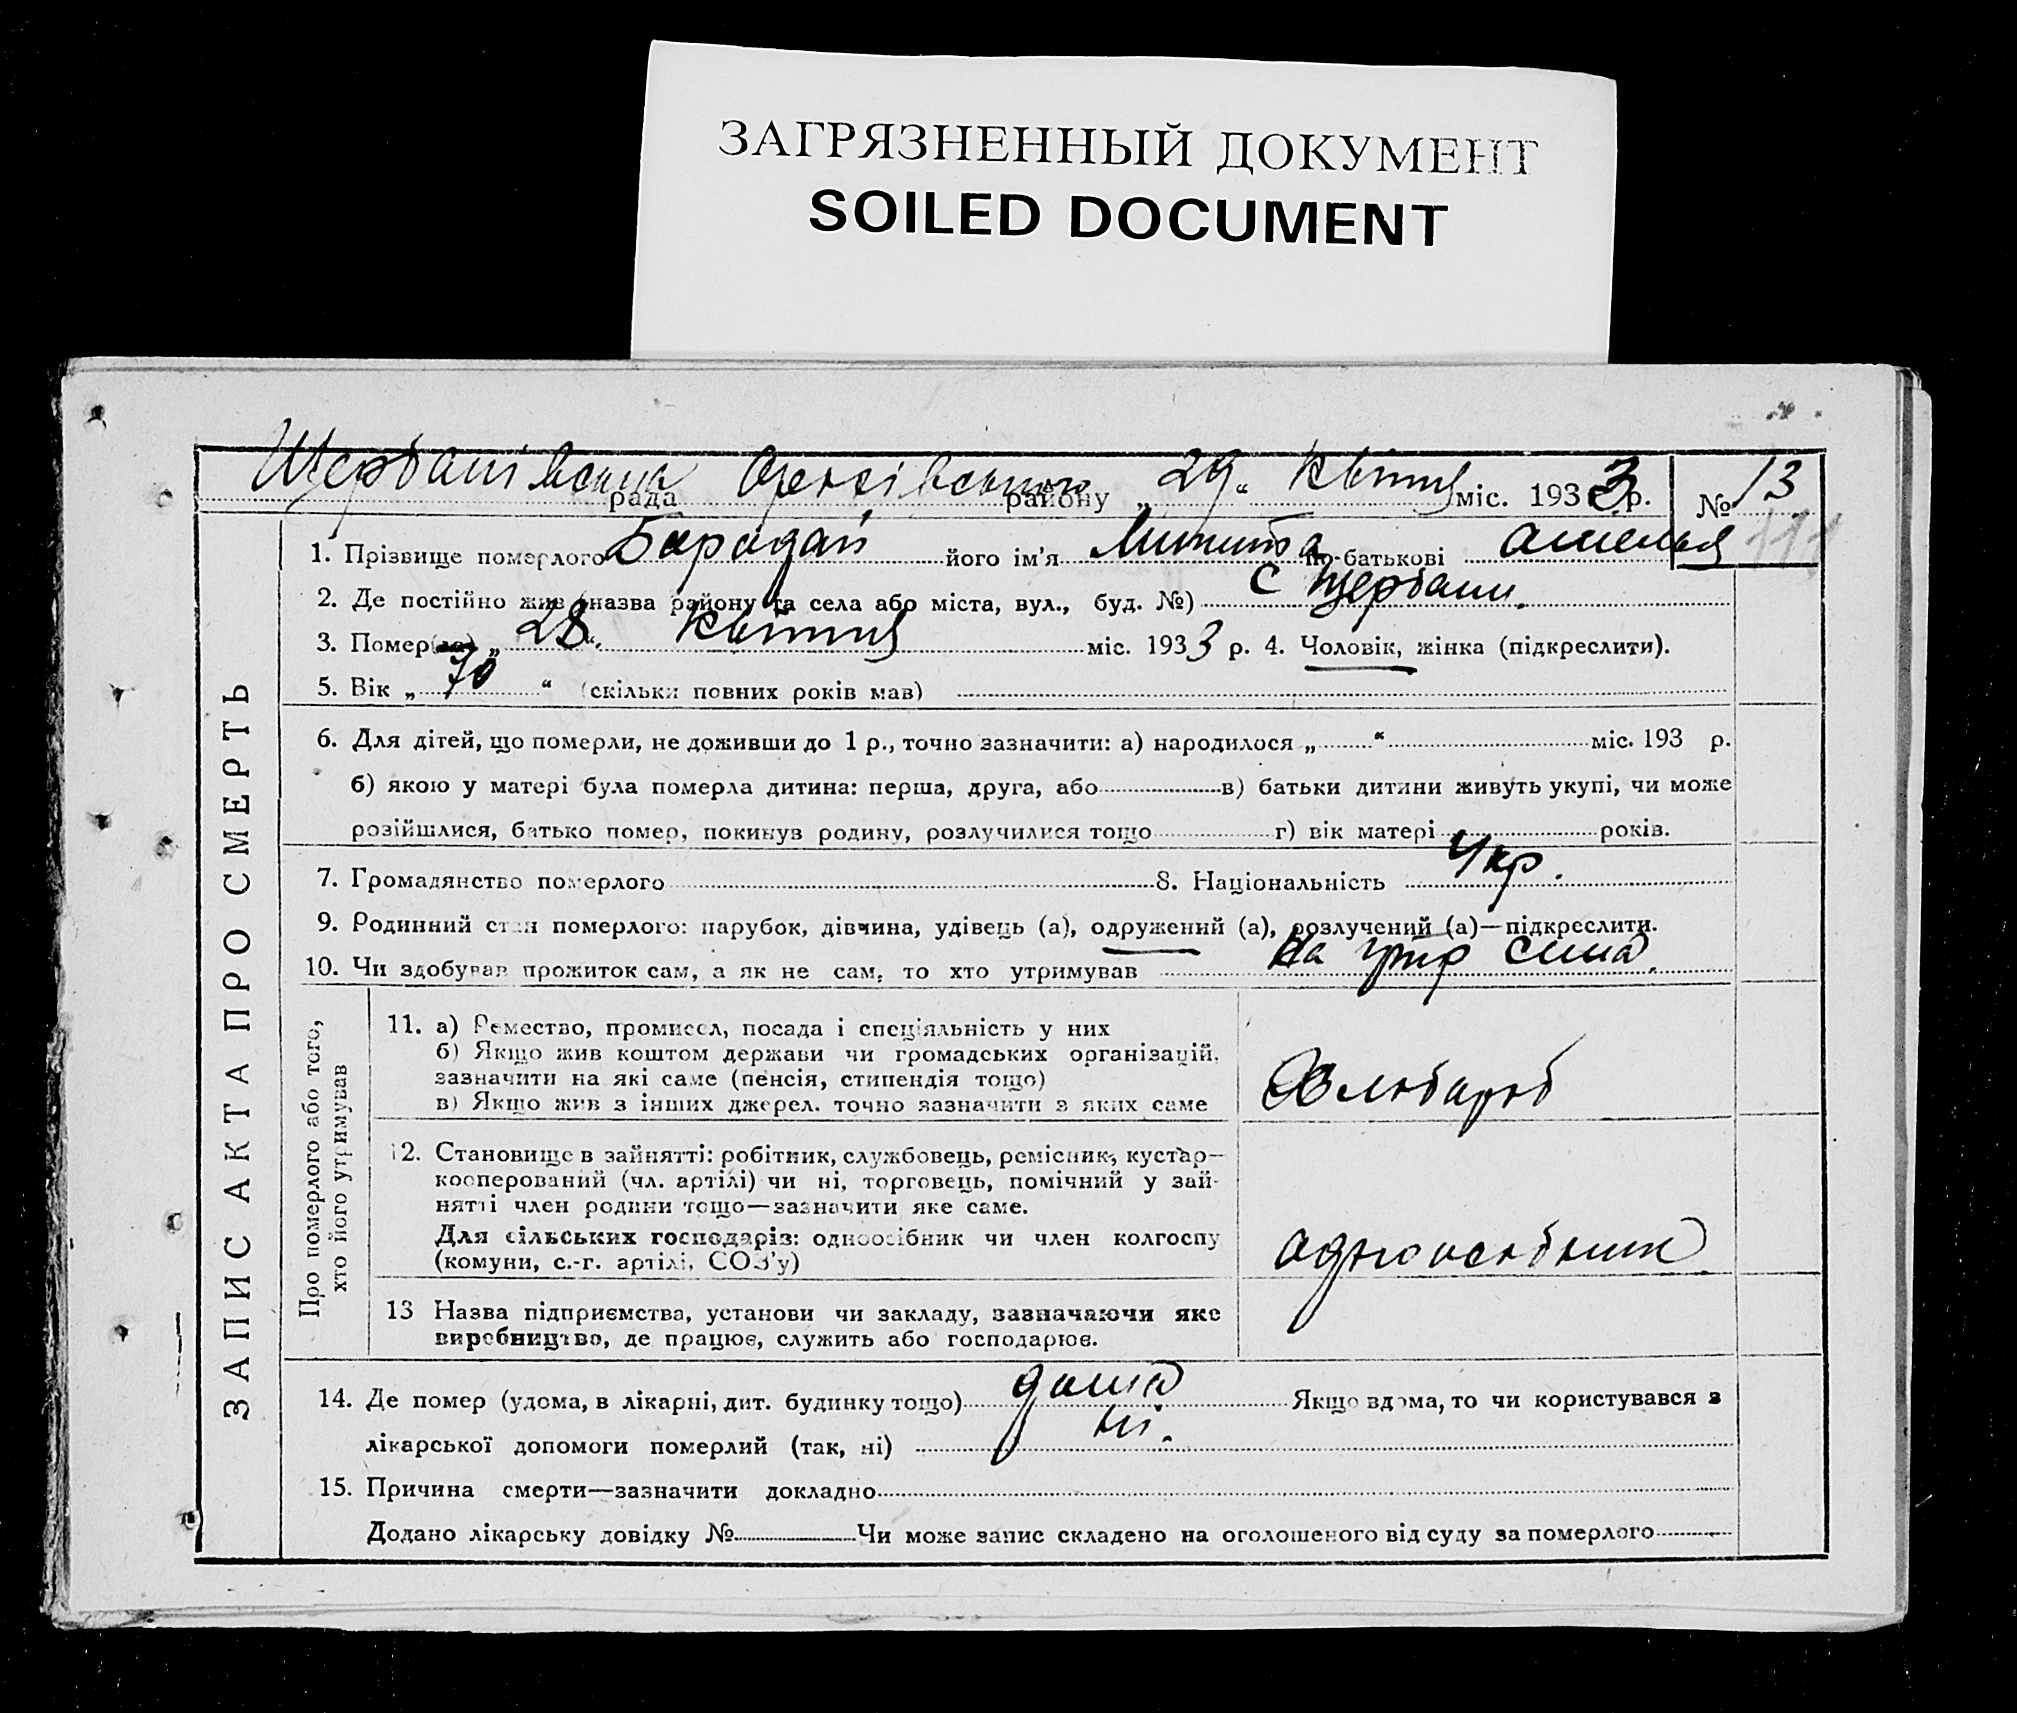 ЗАГРЯЗНЕННЫЙ ДОКУМЕНТ
SOILED DOCUMENT
Щербанівська рада району „29“ Квітня міс. 1933 р. № 13
1. Прізвище померлого Барадай його ім’я Микита по-батькові
2. Де постійно жив (назва району та села або міста, вул., буд. №) с Щербани.
3. Помер(ло) „28“ Квітня міс. 1933 р. 4. Чоловік, жінка (підкреслити).
5. Вік „70“ (скільки повних років мав)
6. Для дітей, що померли, не доживши до 1 р., точно зазначити: а) народилося „ “ міс. 193 р.
б) якою у матері була померла дитина: перша, друга, або в) батьки дитини живуть укупі, чи може
розійшлися, батько помер, покинув родину, розлучилися тощо г) вік матері років.
7. Громадянство померлого 8. Національність Укр.
9. Родинний стан померлого: парубок, дівчина, удівець (а), одружений (а), розлучений (а)—підкреслити.
10. Чи здобував прожиток сам, а як не сам, то хто утримував На утр сина.
ЗАПИС АКТА ПРО СМЕРТЬ
Про померлого або того,
хто його утримував
11. а) Ремество, промисел, посада і спеціяльність у них
б) Якщо жив коштом держави чи громадських організацій,
зазначити на які саме (пенсія, стипендія тощо)
в) Якщо жив з інших джерел. точно зазначити з яких саме
Хлюбароб
12. Становище в зайнятті: робітник, службовець, ремісник, кустар—
кооперований (чл. артілі) чи ні, торговець, помічний у зай-
нятті член родини тощо—зазначити яке саме.
Для сільських господарів: одноосібник чи член колгоспу
(комуни, с.-г. артілі, СОЗ’у)
одноосібник
13 Назва підприємства, установи чи закладу, зазначаючи яке
виробництво, де працює, служить або господарює.
14. Де помер (удома, в лікарні, дит. будинку тощо) дома Якщо вдома, то чи користувався з
лікарської допомоги померлий (так, ні) ні.
15. Причина смерти—зазначити докладно
Додано лікарську довідку № Чи може запис складено на оголошеного від суду за померлого